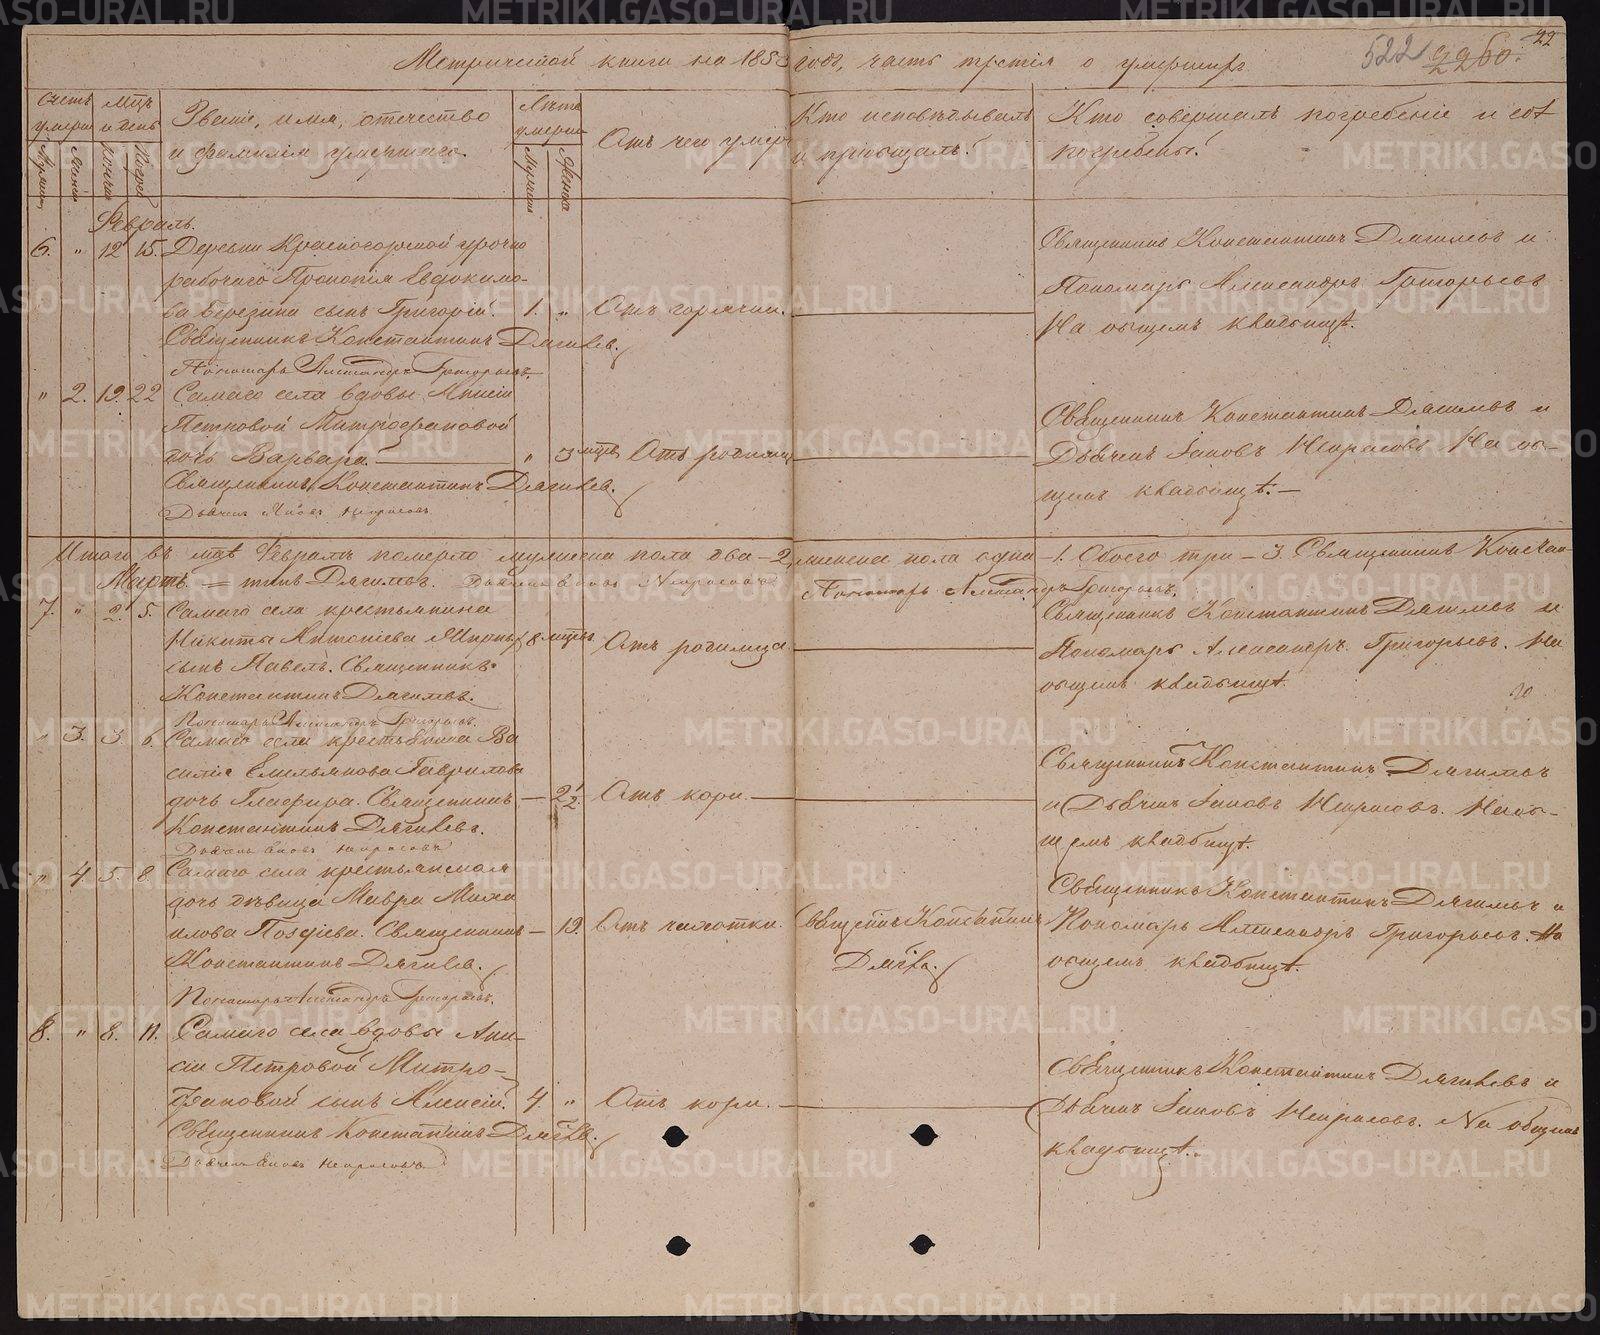 Метрической книги на 1853 годъ, часть третія о умершихъ
522 2260. 22
Счетъ умерш.
Мужеска
Женска
Мцъ и день
Кончин.
Погреб.
Званіе, имя, отчество
и фамилія умершаго.
Лѣта умерш.
Мужеска
Женска
Отъ чего умеръ
Кто исповѣдывалъ
и пріобщалъ?
Кто совершалъ погребеніе и гдѣ
погребены?
Февраль.
6. " 12 15. Деревни Красногорской урочно
рабочаго Прокопія Евдокимо-
ва Березина сынъ Григорій. 1. " Отъ горячки.
Священникъ Константинъ Дягилевъ.
Пономарь Александръ Григорьевъ.
Священникъ Константинъ Дягилевъ и
Пономарь Александръ Григорьевъ
На общемъ кладбищѣ.
" 2. 19. 22 Самаго села вдовы Анисіи
Петровой Митрофановой
дочь Варвара. " 3 мцъ Отъ родимца
Священникъ Константинъ Дягилевъ.
Дьячекъ Яковъ Некрасовъ
Священникъ Константинъ Дягилевъ и
Дьячекъ Іаковъ Некрасовъ На об-
щемъ кладбищѣ.
Итого въ мцѣ Февралѣ померло мужеска пола два - 2, женска пола одна - 1. Обоего три - 3. Священникъ Констан-
тинъ Дягилевъ. Дьячекъ Яковъ Некрасовъ Пономарь Александръ Григорьевъ.
Мартъ.
7. " 2. 5. Самаго села крестьянина
Никиты Антоніева 8 мцъ Отъ родимца
сынъ Павелъ. Священникъ
Константинъ Дягилевъ.
Пономарь Александръ Григорьевъ.
Священникъ Константинъ Дягилевъ и
Пономарь Александръ Григорьевъ. На
общемъ кладбищѣ.
" 3. 3. 6. Самаго села крестьянина Ва
силія Емельянова Гаврилова
дочь Глафира. Священникъ — 2½ Отъ кори.
Константинъ Дягилевъ.
Дьячекъ Яковъ Некрасовъ
Священникъ Константинъ Дягилевъ
и Дьячекъ Іаковъ Некрасовъ. На об-
щемъ кладбищѣ.
" 4. 5. 8. Самаго села крестьянская
дочь дѣвица Мавра Миха
илова Поздѣева. Священникъ — 19. Отъ чахотки. Священникъ Константинъ
Константинъ Дягилевъ. Дягилевъ.
Пономарь Александръ Григорьевъ.
Священникъ Константинъ Дягилевъ и
Пономарь Александръ Григорьевъ. На
общемъ кладбищѣ.
8. " 8. 11. Самаго села вдовы Ани-
сіи Петровой Митро-
фановой сынъ Алексій. 4. " Отъ кори.
Священникъ Константинъ Дягилевъ.
Дьячекъ Яковъ Некрасовъ
Священникъ Константинъ Дягилевъ и
Дьячекъ Іаковъ Некрасовъ. На общемъ
кладбищѣ.
METRIKI.GASO-URAL.RU